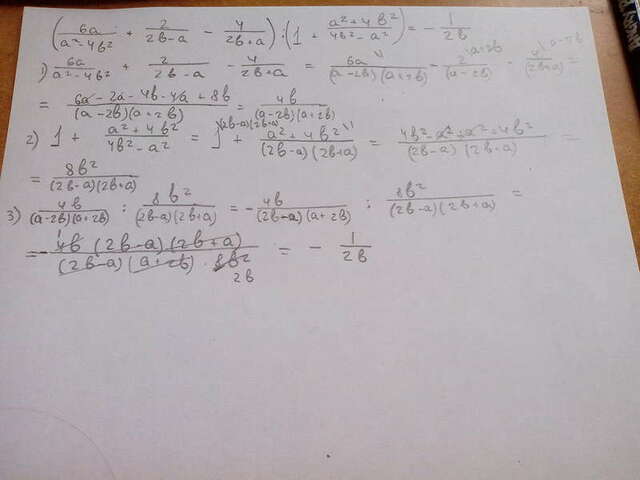 (6a/(a²-4b²) + 2/(2b-a) - 4/(2b+a)) : (1 + (a²+4b²)/(4b²-a²)) = -1/(2b)
1) 6a/(a²-4b²) + 2/(2b-a) - 4/(2b+a) = 6a\1/((a-2b)(a+2b)) - 2\a+2b/(a-2b) - 4\a-2b/(2b+a) =
= (6a-2a-4b-4a+8b)/((a-2b)(a+2b)) = 4b/((a-2b)(a+2b))
2) 1 + (a²+4b²)/(4b²-a²) = 1\(2b-a)(2b+a) + (a²+4b²)\1/((2b-a)(2b+a)) = (4b²-a²+a²+4b²)/((2b-a)(2b+a)) =
= 8b²/((2b-a)(2b+a))
3) 4b/((a-2b)(a+2b)) : 8b²/((2b-a)(2b+a)) = -4b/((2b-a)(a+2b)) : 8b²/((2b-a)(2b+a)) =
= -4b(2b-a)(2b+a)/((2b-a)(a+2b)·8b²) = -1/(2b)